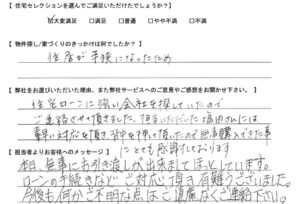 【 住宅セレクションを選んでご満足いただけたでしょうか？ 】
☑大変満足 □満足 □普通 □やや不満 □不満
【 物件探し/家づくりのきっかけは何でしたか？ 】
住居が手狭になったため
【 弊社をお選びいただいた理由、また弊社サービスへのご意見やご感想をお聞かせ下さい。 】
住宅ローンに強い会社を探していたので
ご連絡させて頂きました。担当いただいた福田さんには
素早い対応を頂き、背中を押して頂いたので無事購入できた事
にとても感謝しております
【 担当者よりお客様へのメッセージ 】
本日、無事にお引き渡しが出来ましてほっとしています。
ローンの手続きなどご対応頂き有難うございました。
今後も何かご不明な点はご遠慮なくご連絡下さい。